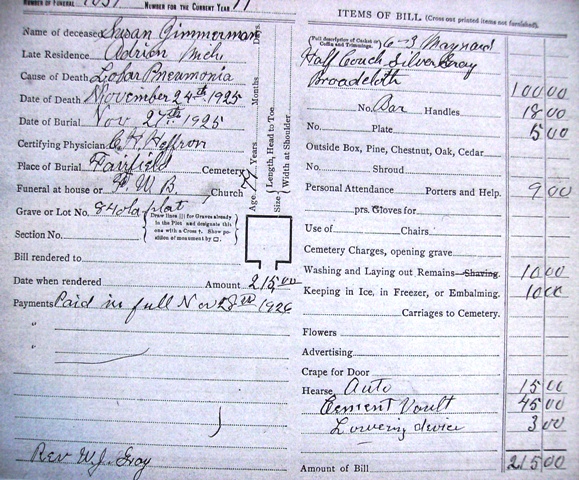 NUMBER OF FUNERAL
NUMBER FOR THE CURRENT YEAR
Name of deceased Susan Zimmerman
Late Residence Adrian Mich
Cause of Death Lobar Pneamonia
Date of Death November 24th 1925
Date of Burial Nov 27th 1925
Certifying Physician Heffron
Place of Burial Fairfield Cemetery
Funeral at house or U B Church
Grave or Lot No. 84 old plat
(Draw lines ||| for Graves already in the Plot and designate this one with a Cross †. Show position of monument by □.)
Section No.
Age Years Months Days
Size Length, Head to Toe
Width at Shoulder
Bill rendered to
Date when rendered Amount 215.00
Payments Paid in full Nov 1926
"
"
Rev W.J. Gray
ITEMS OF BILL (Cross out printed items not furnished).
(Full description of Casket or Coffin and Trimmings.) 6-3 Maynard
Half Couch Silver Gray
Broadcloth 100 00
No. Bar Handles 18 00
No. Plate 5 00
Outside Box, Pine, Chestnut, Oak, Cedar
No. Shroud
Personal Attendance Porters and Help. 9 00
prs. Gloves for
Use of Chairs
Cemetery Charges, opening grave
Washing and Laying out Remains—Shaving. 10 00
Keeping in Ice, in Freezer, or Embalming. 10 00
Carriages to Cemetery.
Flowers
Advertising
Crape for Door
Hearse Auto 15 00
Cement Vault 45 00
Lowering device 3 00
Amount of Bill 215 00